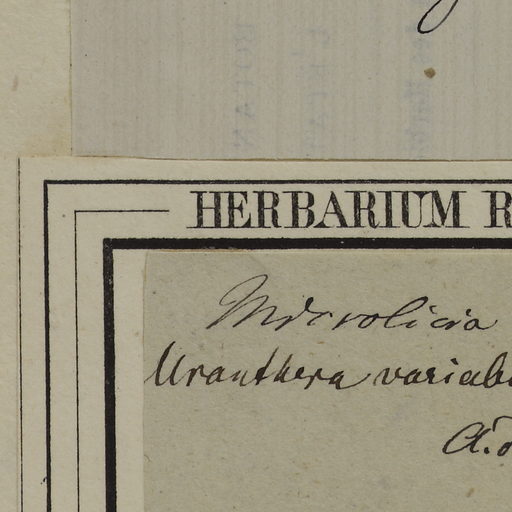 HERBARIUM R
Microlicia
Uranthera variab